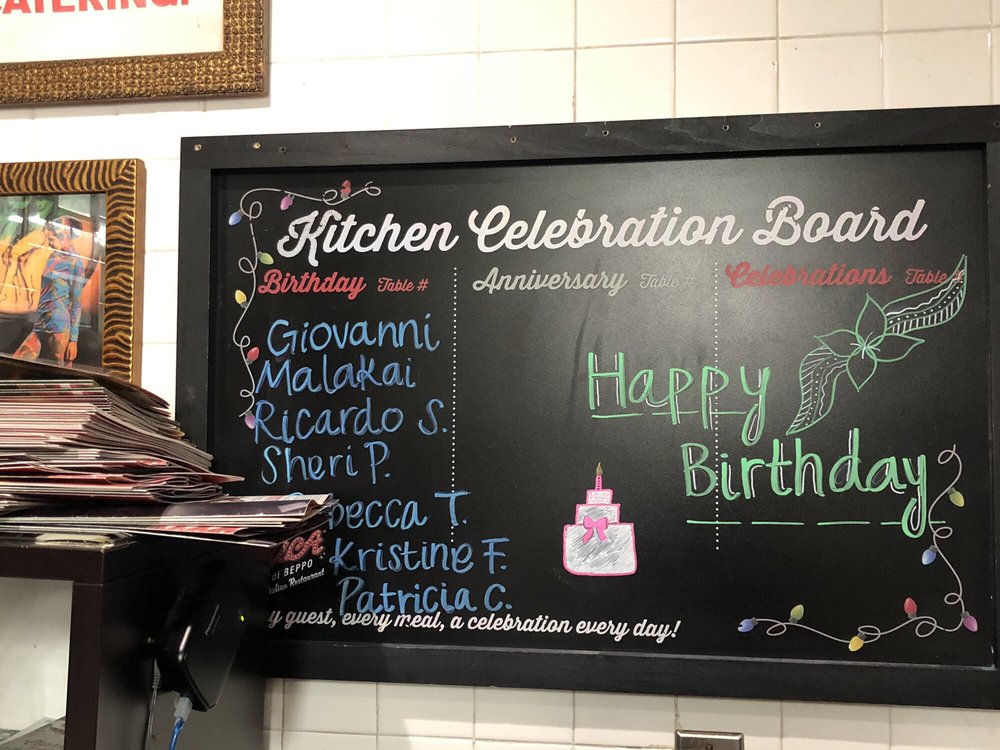 CATERING!
Kitchen Celebration Board
Birthday Table #
Anniversary Table #
Celebrations Table #
Giovanni
Malakai
Ricardo S.
Sheri P.
becca T.
Kristine F.
Patricia C.
Happy
Birthday
CA
di BEPPO
Italian Restaurant
y guest, every meal, a celebration every day!